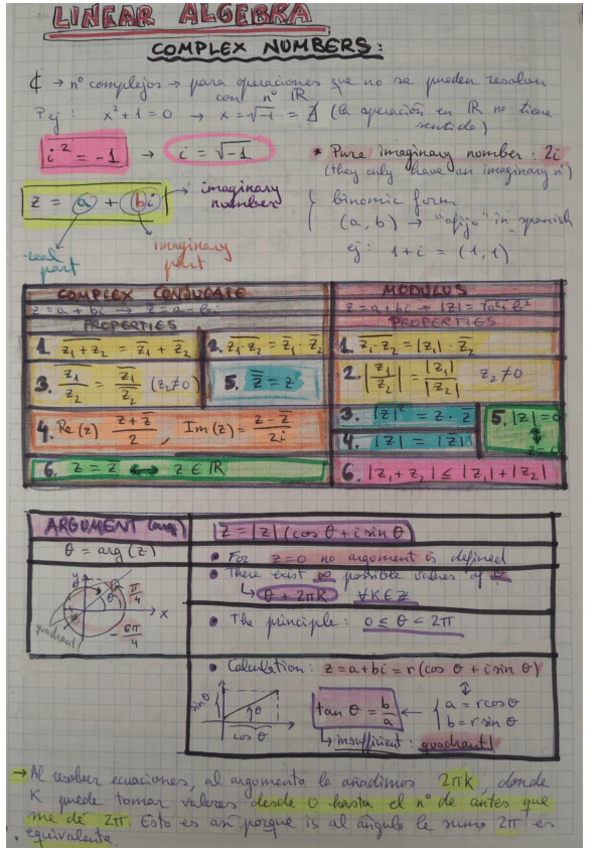 LINEAR ALGEBRA
COMPLEX NUMBERS:
₵ → nº complejos → para operaciones que no se pueden resolver
con nº ℝ
P ej: x²+1=0 → x=√-1 = ∄ (la operación en ℝ no tiene
sentido)
i² = -1 → i = √-1
* Pure imaginary number: 2i
(they only have an imaginary nº)
z = a + bi → imaginary
number
real
part
imaginary
part
binomic form
(a, b) → "afijo" in spanish
ej: 1+i = (1,1)
COMPLEX CONJUGATE
z = a+bi → z̅ = a-bi
PROPERTIES
1. z₁+z₂ = z̅₁ + z̅₂
2. z₁·z₂ = z̅₁ · z̅₂
3. z₁/z₂ = z̅₁/z̅₂ (z₂≠0)
5. z̿ = z
4. Re(z) z+z̅/2 , Im(z) = z-z̅/2i
6. z = z̅ ↔ z ∈ ℝ
MODULUS
z = a+bi → |z| = √a²+b²
PROPERTIES
2. |z₁/z₂| = |z₁|/|z₂| z₂≠0
3. |z|² = z · z̅
4. |z| = |z̅|
5. |z|=0
↕
z=0
6. |z₁+z₂| ≤ |z₁|+|z₂|
ARGUMENT (arg)
θ = arg(z)
y
θ
π/4
x
-6π/4
quadrant!
z = |z| (cos θ + i sin θ)
• For z=0 no argument is defined
• There exist ∞ possible values of θ
↳ θ + 2πk ∀k∈ℤ
• The principle: 0 ≤ θ < 2π
• Calculation: z = a+bi = r(cos θ + i sin θ)
sin θ
θ
cos θ
tan θ = b/a ← { a = r cos θ
b = r sin θ
↳ insufficient: quadrant!
→ Al resolver ecuaciones, al argumento le añadimos 2πk, donde
K puede tomar valores desde 0 hasta el nº de antes que
me dé 2π. Esto es así porque is al ángulo le sumo 2π es
equivalente.